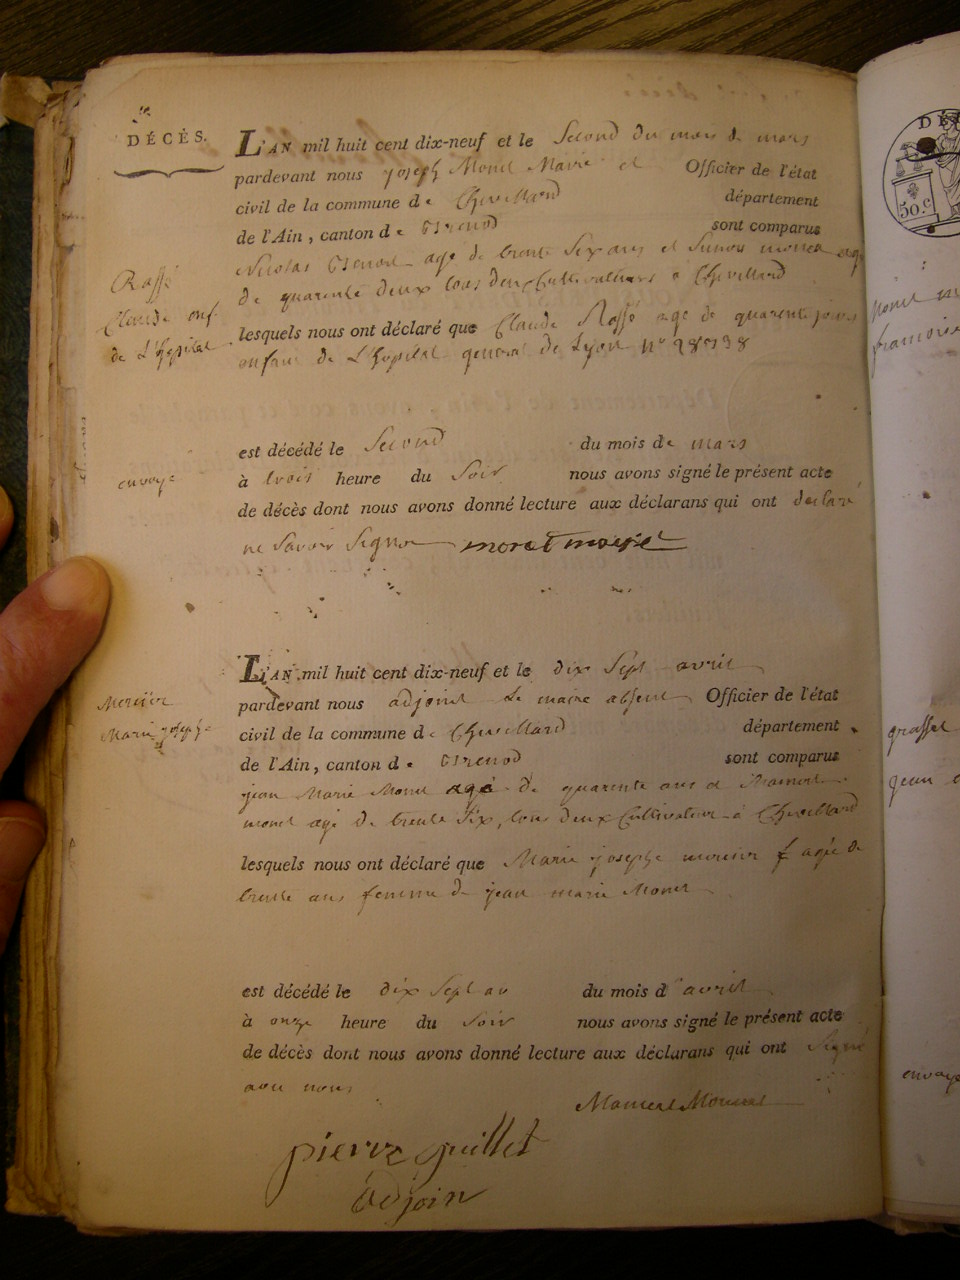 DÉCÈS.
L'AN mil huit cent dix-neuf et le Second du mois de mars
pardevant nous joseph Monet Maire et Officier de l'état
civil de la commune de Chevillard département
de l'Ain, canton de Brenod sont comparus
Nicolas agé de trente Six ans et
de quarente deux tous deux Cultivateurs a Chevillard
Raffé
Claude enf.
de L'hopital
lesquels nous ont déclaré que Claude Raffé agé de quarente jours
enfant de L'hopital general de Lyon N°
est décédé le Second du mois de mars
envoye
à trois heure du Soir nous avons signé le présent acte
de décès dont nous avons donné lecture aux déclarans qui ont declaré
ne Savoir Signer monet maire
L'AN mil huit cent dix-neuf et le dix Sept avril
Mercier
Marie josephe
pardevant nous adjoint Le maire absent Officier de l'état
civil de la commune de Chevillard département
de l'Ain, canton de Brenod sont comparus
jean Marie Monet agé de quarente ans et
monet agé de trente Six, tous deux Cultivateur a Chevillard
lesquels nous ont déclaré que Marie josephe mercier agée de
trente ans femme de jean marie Monet
est décédé le dix Sept du mois d'avril
à onze heure du Soir nous avons signé le présent acte
de décès dont nous avons donné lecture aux déclarans qui ont Signé
nous
pierre guillet
adjoin
50.c
envoye